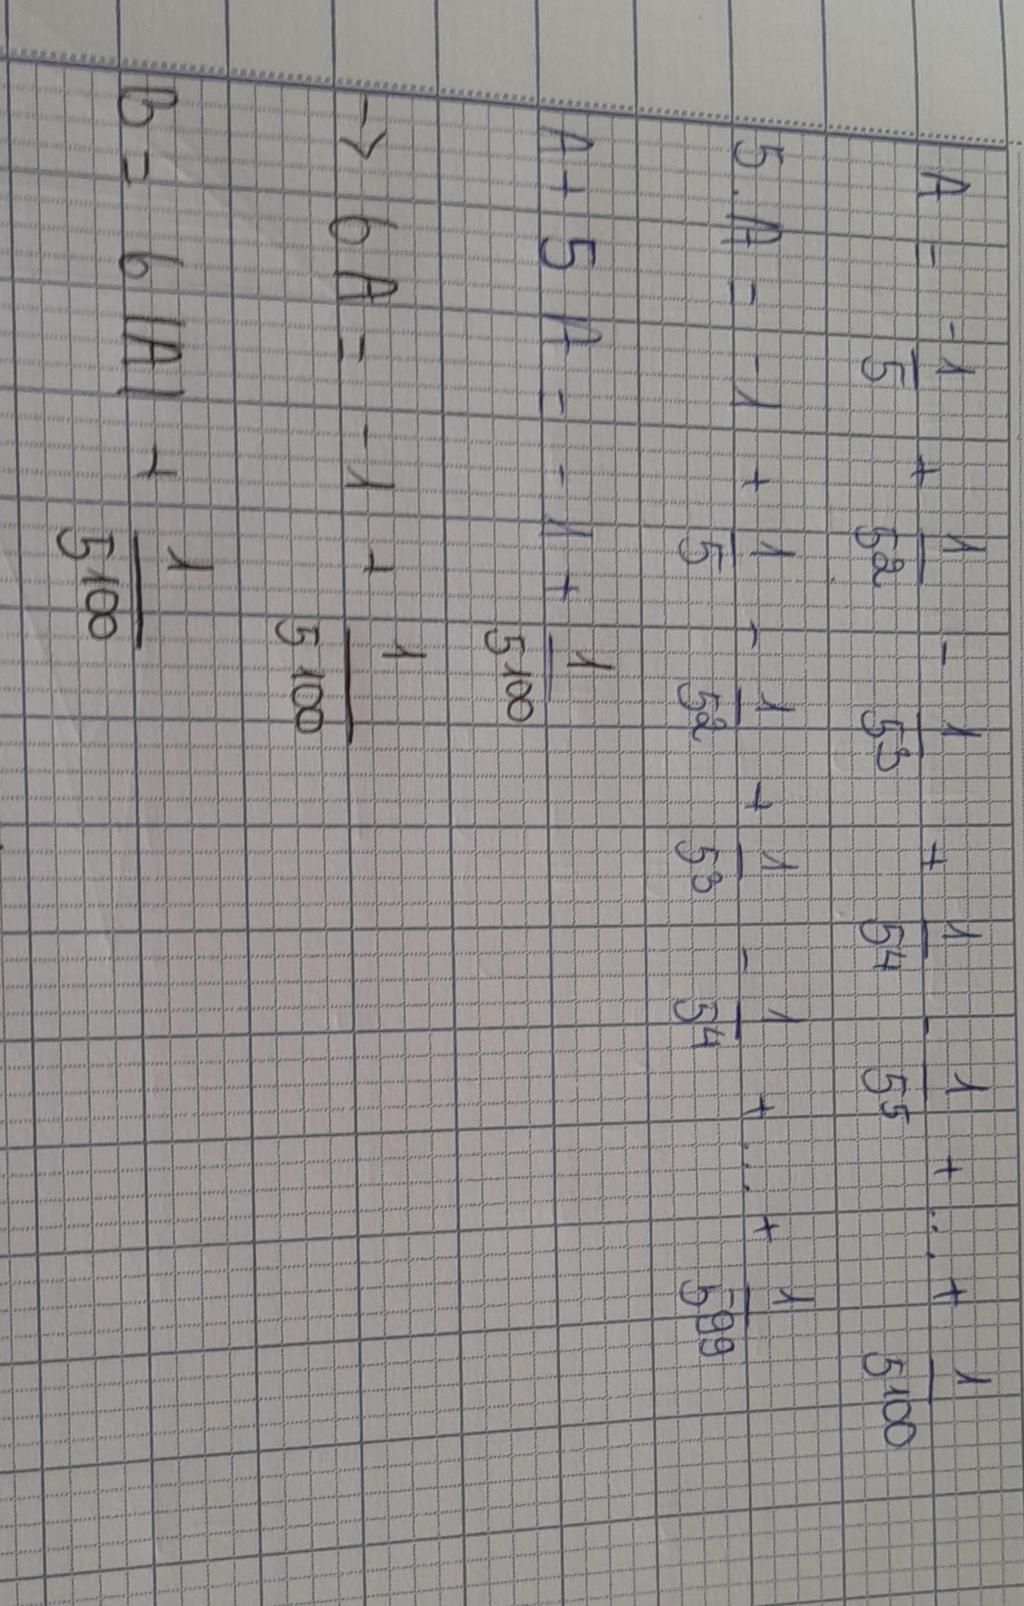 A = -1/5 + 1/5² - 1/5³ + 1/5⁴ - 1/5⁵ + ... + 1/5¹⁰⁰
5.A = -1 + 1/5 - 1/5² + 1/5³ - 1/5⁴ + ... + 1/5⁹⁹
A + 5A = -1 + 1/5¹⁰⁰
→ 6A = -1 + 1/5¹⁰⁰
B = 6|A| + 1/5¹⁰⁰